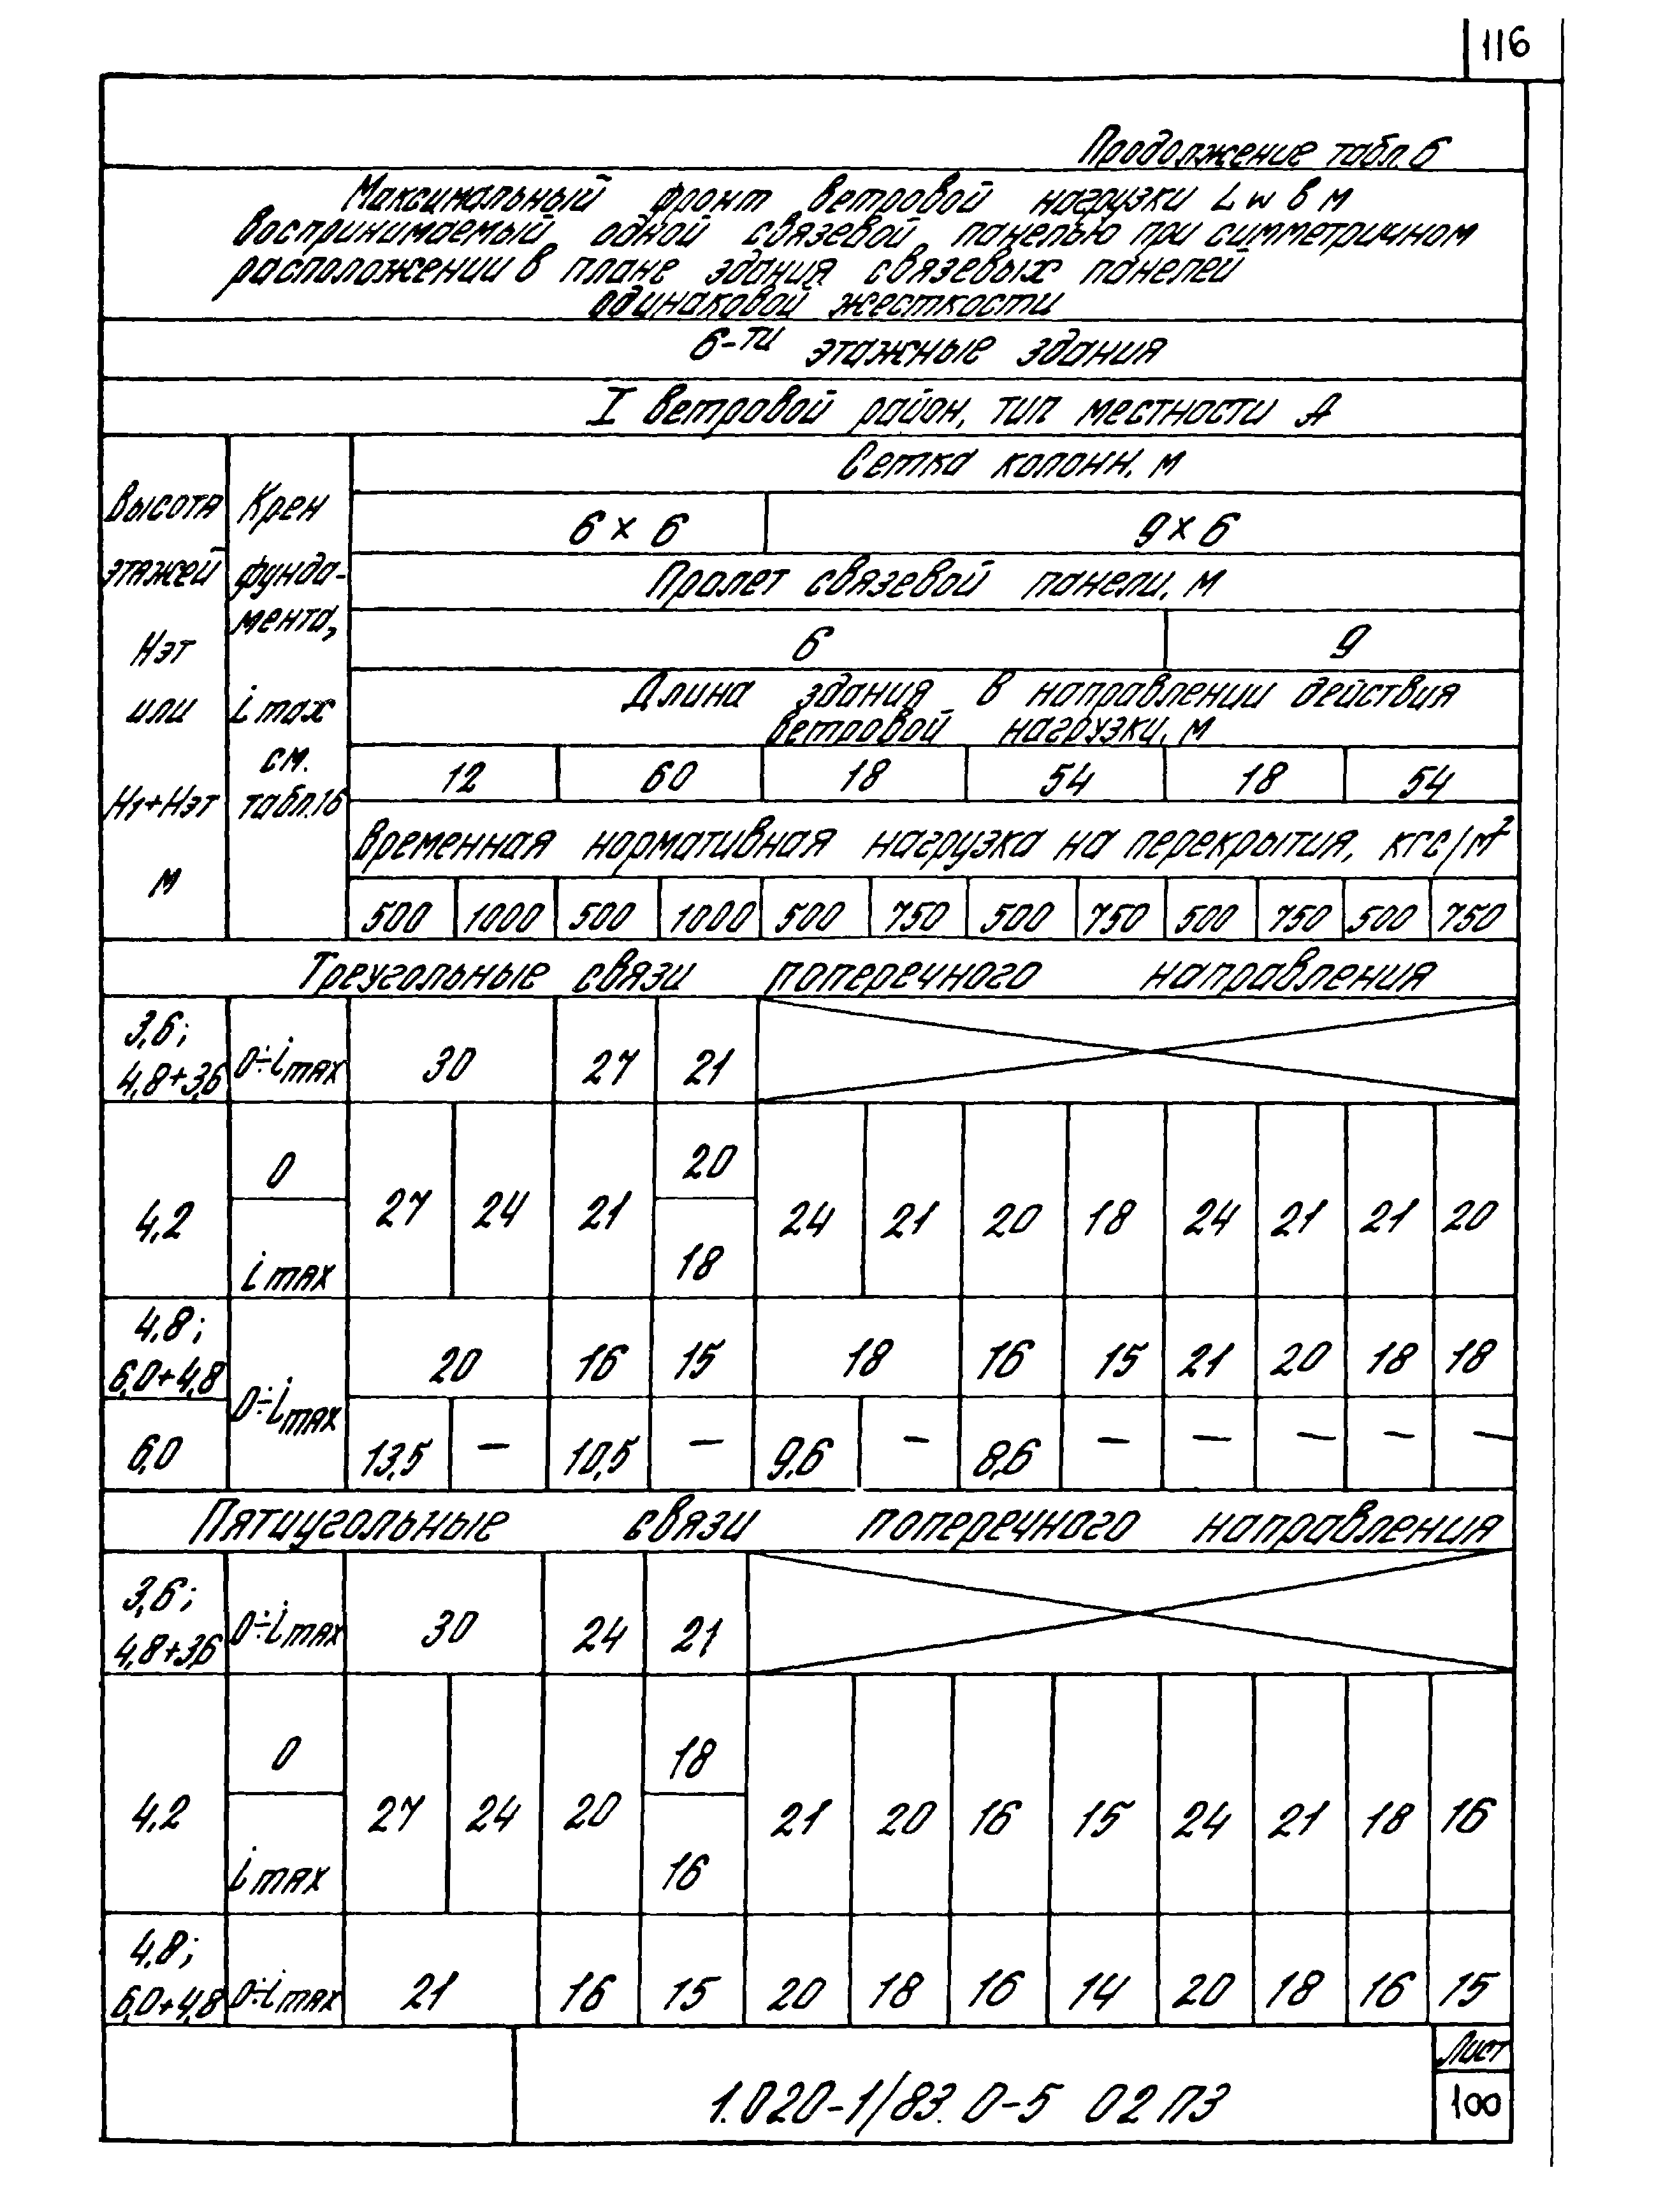 116
Продолжение табл. 6
Максимальный фронт ветровой нагрузки Lw в м
воспринимаемый одной связевой панелью при симметричном
расположении в плане здания связевых панелей
одинаковой жесткости
6-ти этажные здания
I ветровой район, тип местности А
Высота этажей Нэт или Н1+Нэт м
Крен фунда- мента, i max см. табл.16
Сетка колонн, м
6 x 6 9 x 6
Пролет связевой панели, м
6 9
Длина здания в направлении действия
ветровой нагрузки, м
12 60 18 54 18 54
Временная нормативная нагрузка на перекрытия, кгс/м²
500 1000 500 1000 500 750 500 750 500 750 500 750
Треугольные связи поперечного направления
3,6; 4,8+3,6 0÷imax 30 27 21
4,2 0 27 24 21 20 24 21 20 18 24 21 21 20
i max 18
4,8; 6,0+4,8 0÷imax 20 16 15 18 16 15 21 20 18 18
6,0 13,5 — 10,5 — 9,6 — 8,6 — — — — —
Пятиугольные связи поперечного направления
3,6; 4,8+3,6 0÷imax 30 24 21
4,2 0 27 24 20 18 21 20 16 15 24 21 18 16
i max 16
4,8; 6,0+4,8 0÷imax 21 16 15 20 18 16 14 20 18 16 15
1.020-1/83. 0-5 02 ПЗ
Лист
100